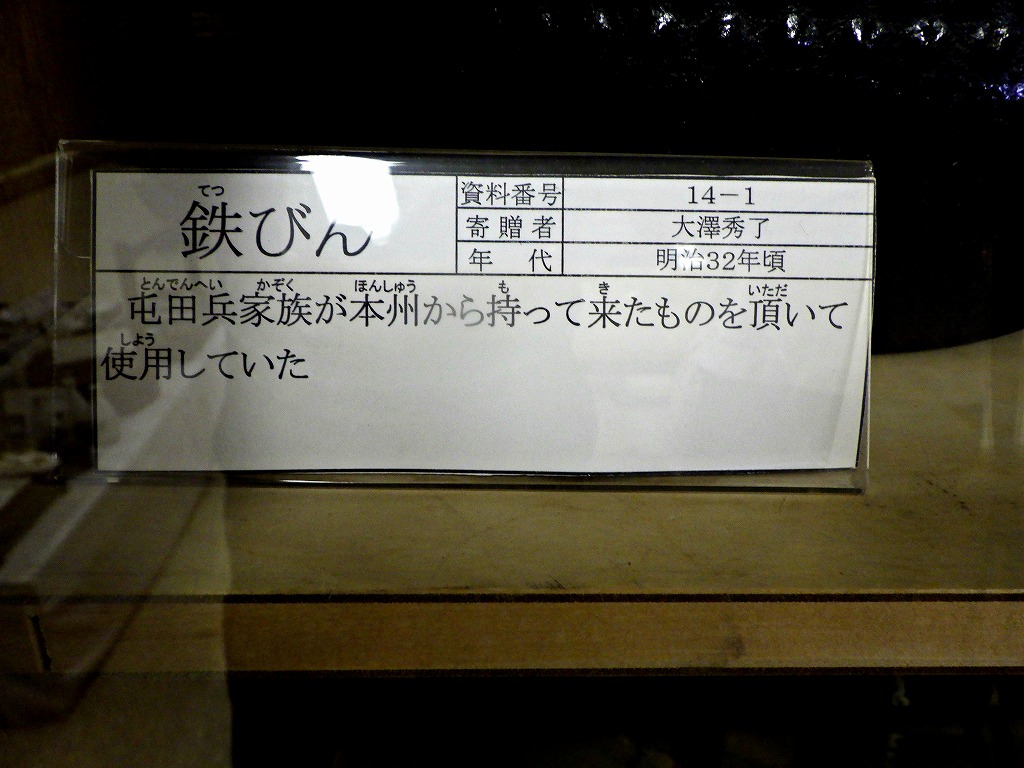 てつ
鉄びん
資料番号 14－1
寄贈者 大澤秀了
年代 明治32年頃
とんでんへい かぞく ほんしゅう も き いただ
屯田兵家族が本州から持って来たものを頂いて
しよう
使用していた